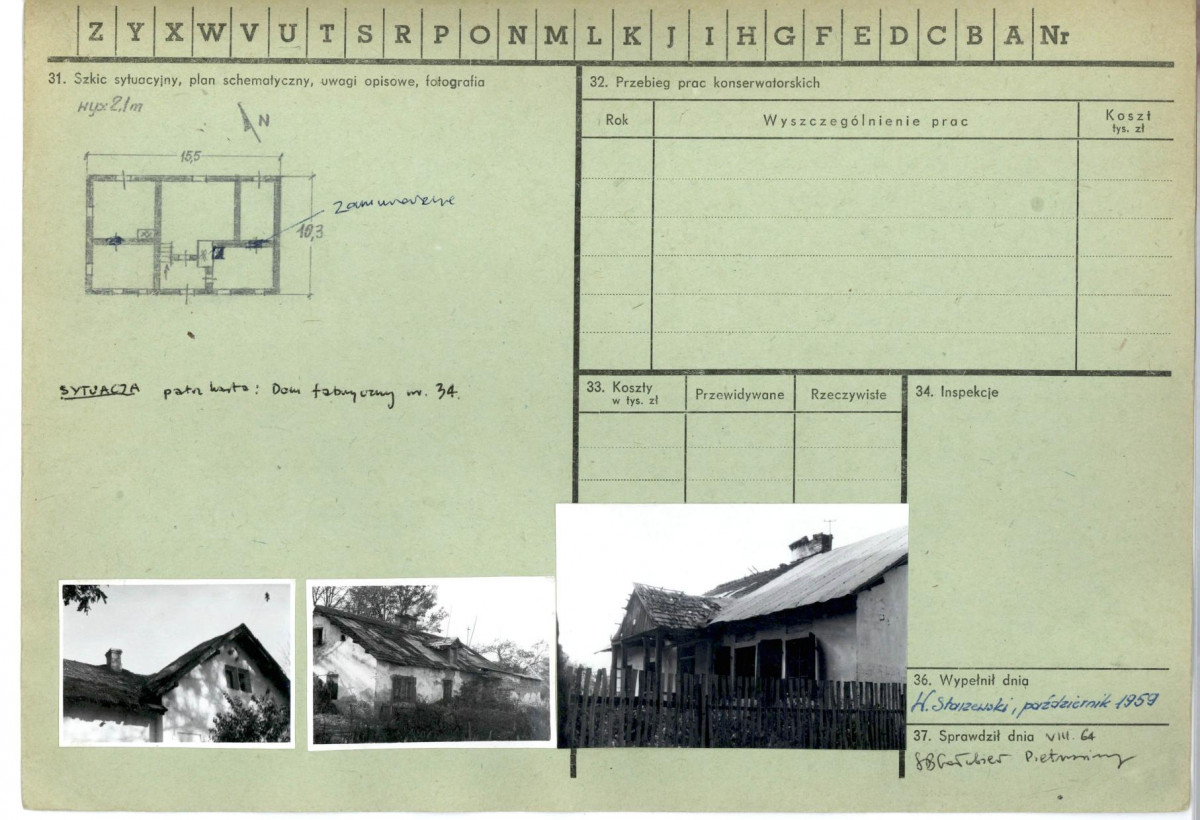 Z Y X W V U T S R P O N M L K J I H G F E D C B A Nr
31. Szkic sytuacyjny, plan schematyczny, uwagi opisowe, fotografia
wys 2.1m
N
15,5
Zamurowane
10,3
SYTUACJA patrz karta: Dom fabryczny nr. 34.
32. Przebieg prac konserwatorskich
Rok
Wyszczególnienie prac
Koszt
tys. zł
33. Koszty
w tys. zł
Przewidywane
Rzeczywiste
34. Inspekcje
36. Wypełnił dnia
październik 1959
37. Sprawdził dnia VIII. 64